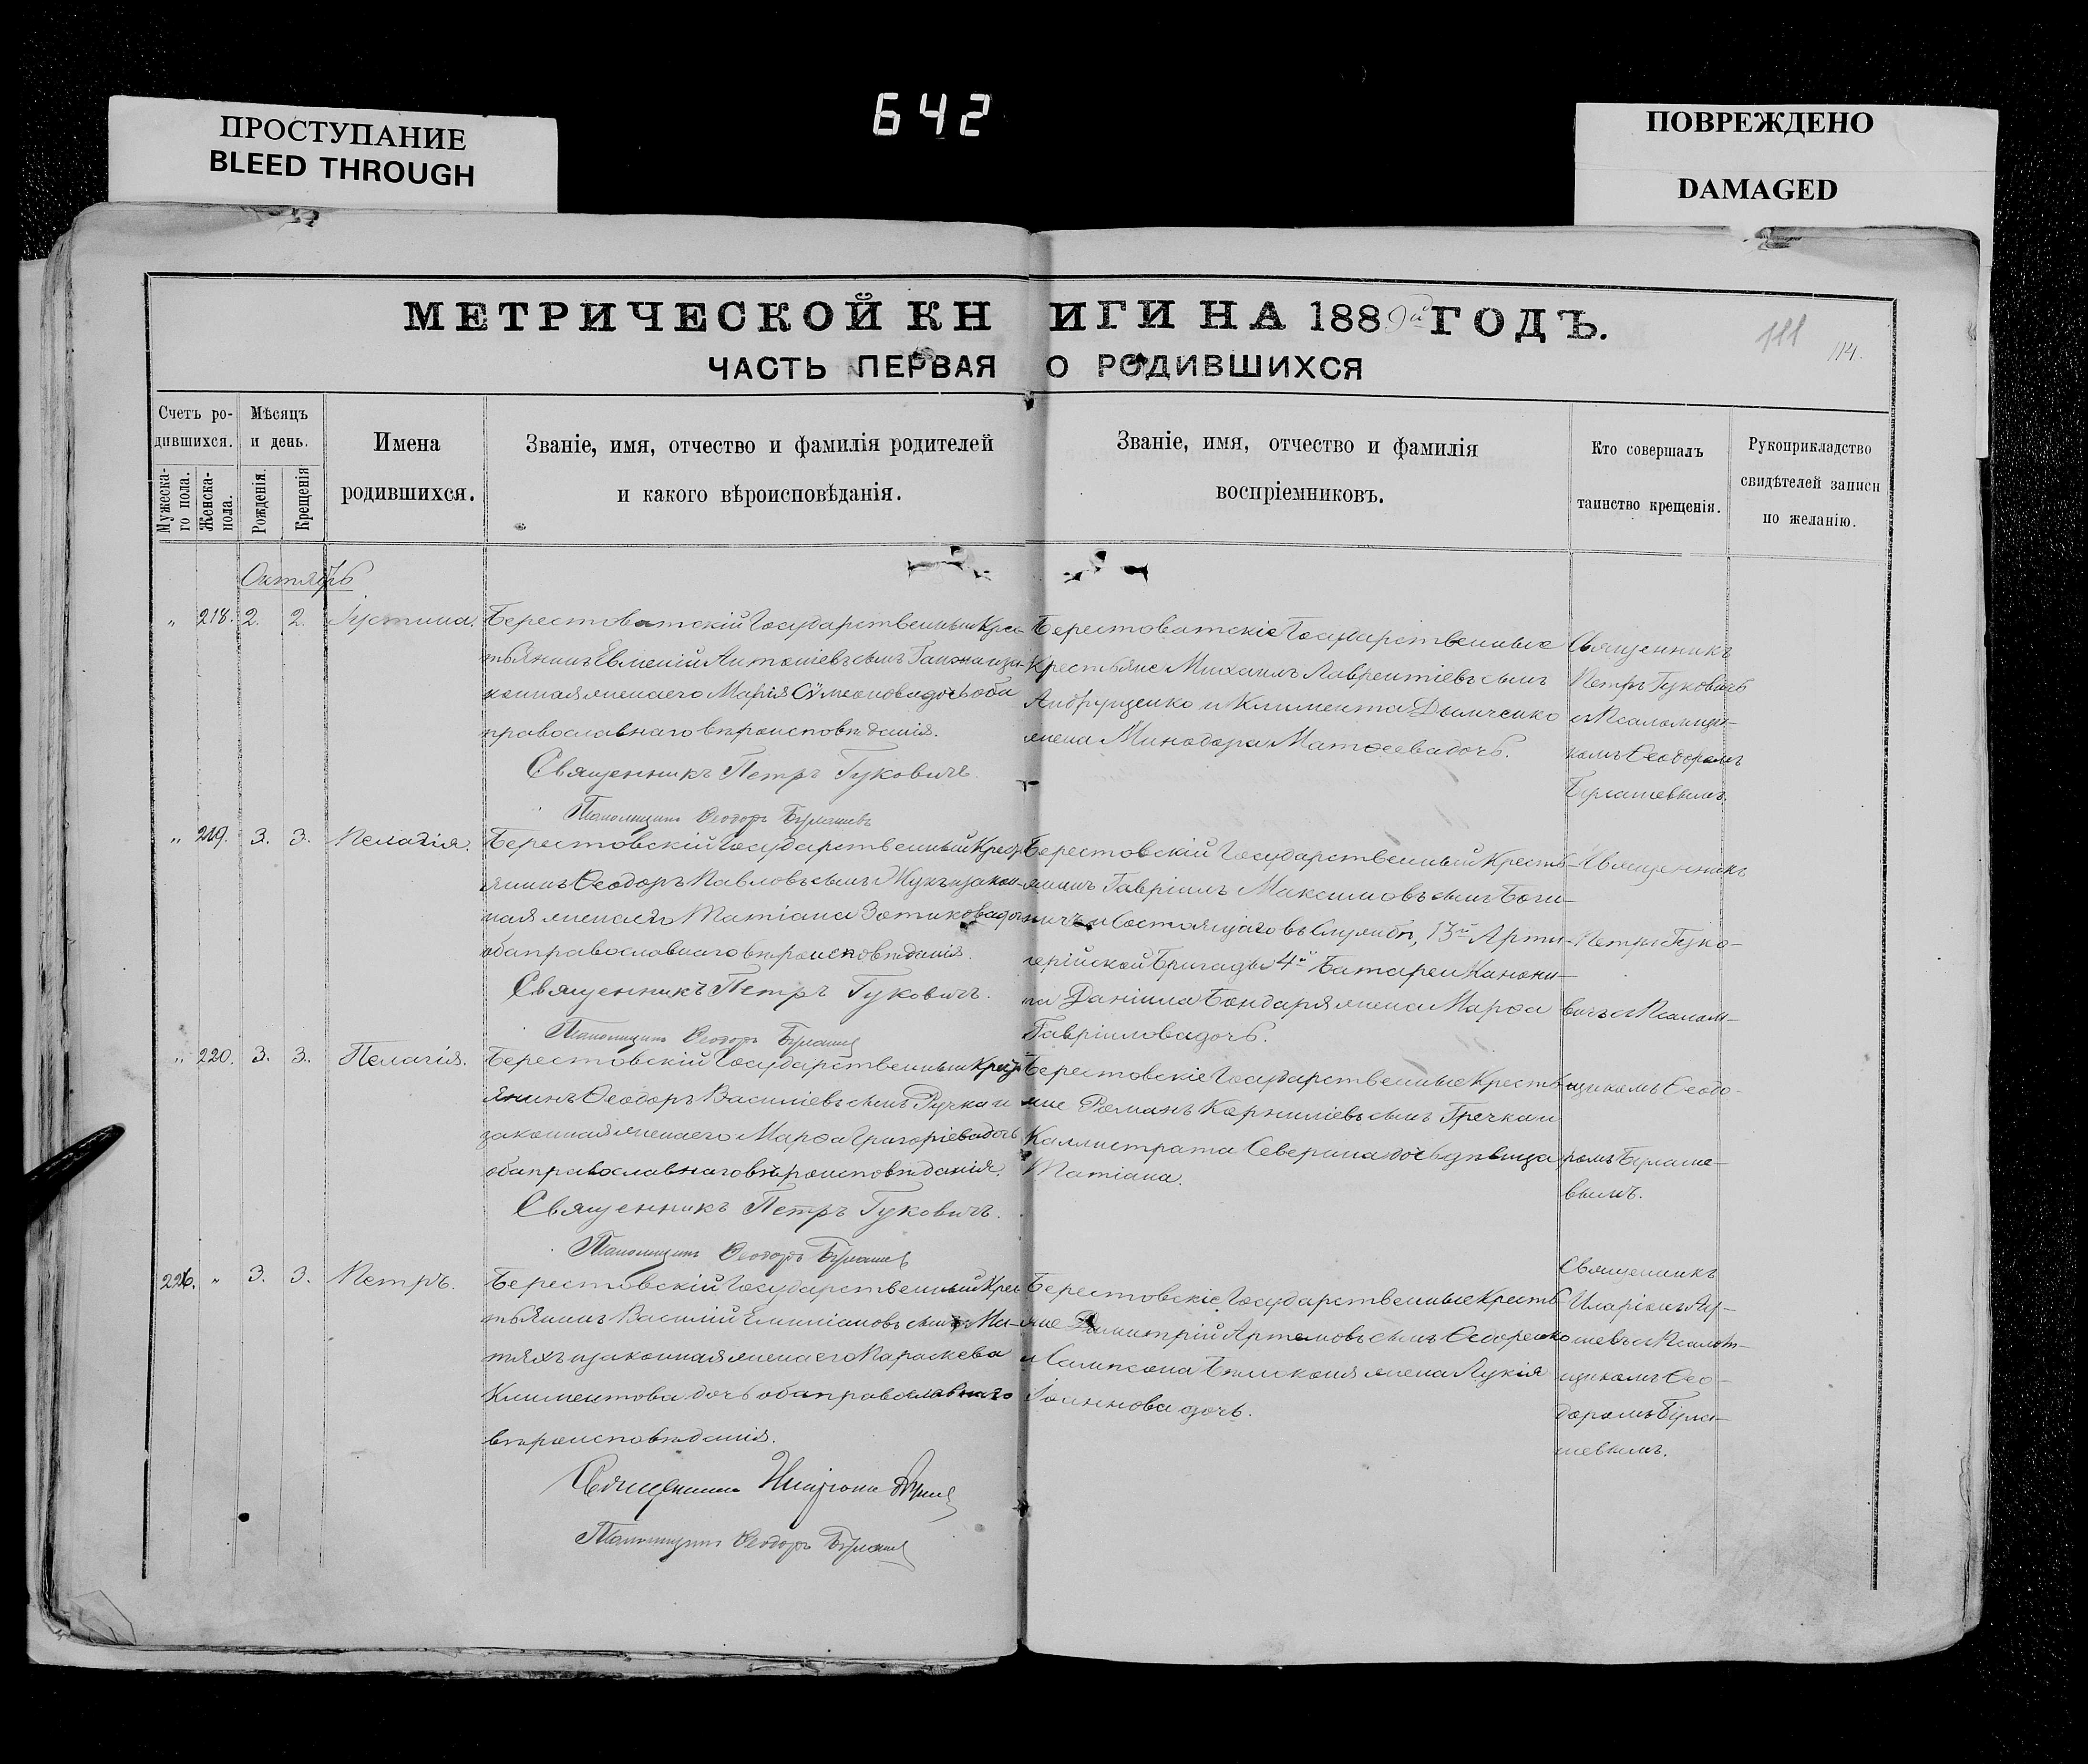 642
ПРОСТУПАНИЕ
BLEED THROUGH
ПОВРЕЖДЕНО
DAMAGED
МЕТРИЧЕСКОЙ КНИГИ НА 1889й ГОДЪ.
114.
ЧАСТЬ ПЕРВАЯ О РОДИВШИХСЯ
Счетъ ро-
дившихся.
Мужеска-
го пола.
Женска-
пола.
Мѣсяцъ
и день.
Рожденія.
Крещенія
Имена
родившихся.
Званіе, имя, отчество и фамилія родителей
и какого вѣроисповѣданія.
Званіе, имя, отчество и фамилія
воспріемниковъ.
Кто совершалъ
таинство крещенія.
Рукоприкладство
свидѣтелей записи
по желанію.
Октябрь
" 218. 2. 2. Іустина.
Берестоватскій Государственный Крес-
тьянинъ Евменій Антоніевъ сынъ и зак-
конная жена его Марія Сѵмеонова дочь оба
православнаго вѣроисповѣданія.
Священникъ Петръ Гуковичъ.
Псаломщикъ Ѳеодоръ Бурлашевъ
Берестоватскіе Государственные
Крестьяне Михаилъ Лаврентіевъ сынъ
Андрущенко и Климента Дымченко
жена Минодора Матѳеева дочь.
Священникъ
Петръ Гуковичъ
съ Псаломщи-
комъ Ѳеодоромъ
Бурлашевымъ.
" 219. 3. 3. Пелагія.
Берестовскій Государственный Кресть-
янинъ Ѳеодоръ Павловъ сынъ Жукъ и закон-
ная жена его Татіана Зотикова дочь
оба православнаго вѣроисповѣданія.
Священникъ Петръ Гуковичъ.
Псаломщикъ Ѳеодоръ Бурлашевъ
Берестовскій Государственный Кресть-
янинъ Гавріилъ Максимовъ сынъ Боги-
ничъ и Состоящаго въ Службѣ, 13й Арти-
лерійской Бригады 4й Батареи Канони-
ра Даніила Бондаря жена Марѳа
Гавріилова дочь.
Священникъ
Петръ Гуко-
вичъ съ Псалом-
щикомъ Ѳеодо-
ромъ Бурлаше-
вымъ.
" 220. 3. 3. Пелагія.
Берестовскій Государственный Кресть-
янинъ Ѳеодоръ Василіевъ сынъ Ручка и
законная жена его Марѳа Григоріева дочь
оба православнаго вѣроисповѣданія.
Священникъ Петръ Гуковичъ.
Псаломщикъ Ѳеодоръ Бурлашевъ
Берестовскіе Государственные Кресть-
яне Романъ Корниліевъ сынъ Гречка и
Каллистрата Северина дочь дѣвица
Татіана.
226. " 3. 3. Петръ.
Берестовскій Государственный Крес-
тьянинъ Василій Емиліановъ сынъ Ма-
тяхъ и законная жена его Параскева
Климентова дочь оба православнаго
вѣроисповѣданія.
Священникъ Иларіонъ
Псаломщикъ Ѳеодоръ Бурлашевъ
Берестовскіе Государственные Кресть-
яне Димитрій Артемовъ сынъ Ѳедоренко
и Сампсона Бѣлоконя жена Лукія
Іоаннова дочь.
Священникъ
Иларіонъ
съ Псалом-
щикомъ Ѳео-
доромъ Бурла-
шевымъ.